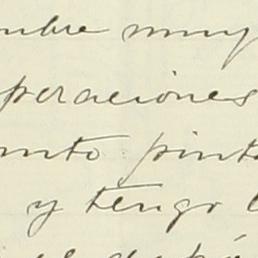 mbre muy
peraciones
nto pint
y tengo